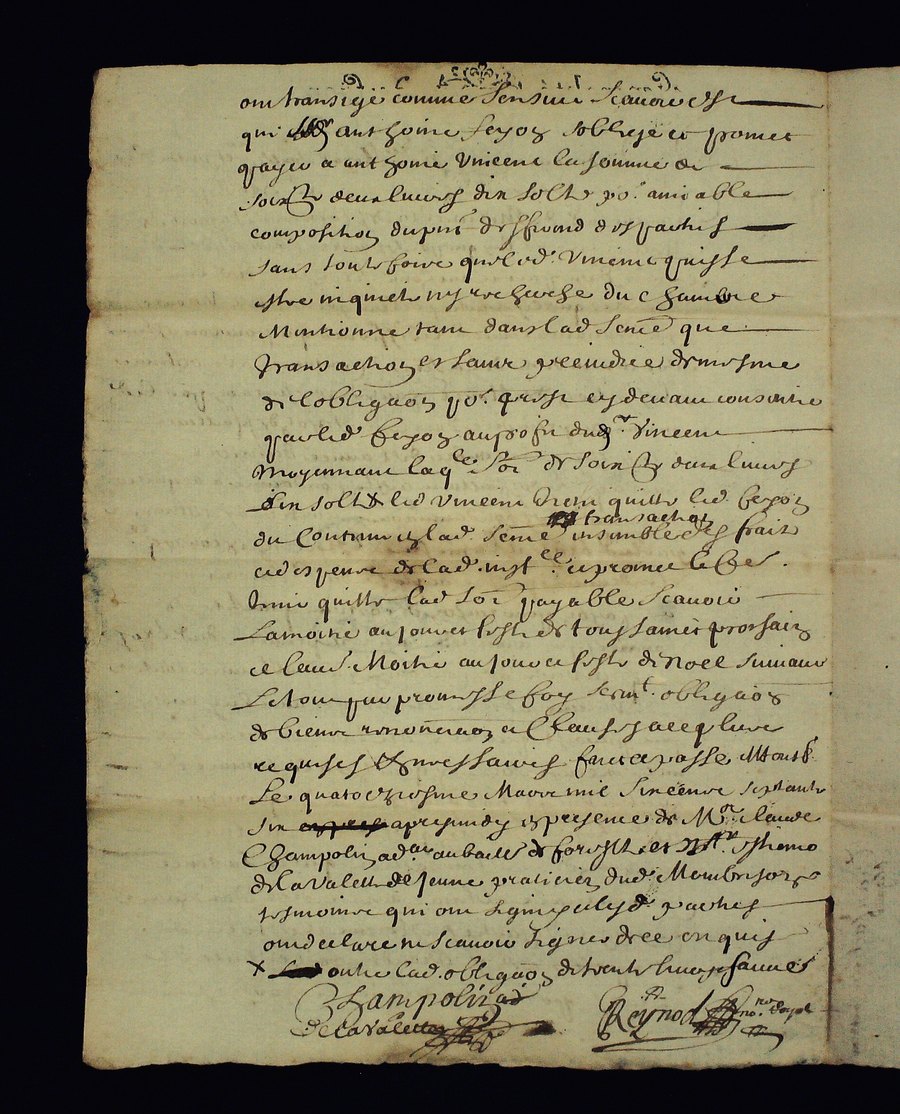 ont transigé comme sensuit scavoir est
qui anthoine feyon soblige et promet
payer a anthoine Vincent la somme de
soix.te deux livres dix solt po.r amiable
composition du pnt desfrend des parties
sans toutefoire que led. Vincent puisse
estre inquieté ny recherche du chambre
Mentionne tant dans lad. sence que
transaction et sans prejudice de mesme
de lobligaon po.r prest cy devant consentie
par led. feyon au profit dud. Vincent
Moyennant laq.le so.e de soix.te deux livres
dix solt x led Vincent tient quitte led. feyon
du contenu en lad. sence transaction ensemble des frais
et despence de lad. inst.ce et promet le
tenir quitte lad so.e payable scavoir
La moitié au jour et feste de toussainct prochain
et laut.e Moitié au jour et feste de noel suivant
Le tout par promesse foy serm.t obligaon
de biens renonciaon et Clauses
requises & nessaires fait et passe a Montb.
Le quatorziesme Mars mil six cens septante
six apres midy en presence de M.re claude
Champolin ad.at au baille de forestz et estienne
de la Valette Le jeune praticien dud. Montbrison
tesmoins qui ont signé et lesd. parties
ont declare ne scavoir signer de ce enquis
x outre lad. obligaon de trente livres sauve
Champolin
Delavalette Reynod no.re